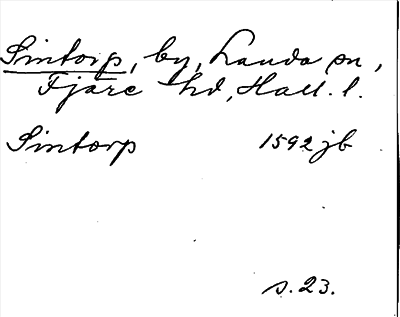 Sintorp, by, Landa sn,
Fjäre hd, Hall. l.
Sintorp 1592 jb
s. 23.